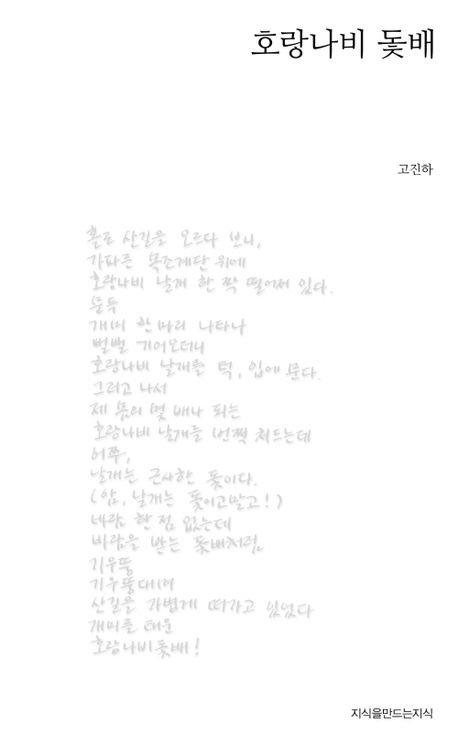 호랑나비 돛배
고진하
홀로 산길을 오르다 보니,
가파른 목조계단 위에
호랑나비 날개 한 짝 떨어져 있다.
문득
개미 한 마리 나타나
뻘뻘 기어오더니
호랑나비 날개를 턱, 입에 문다.
그러고 나서
제 몸의 몇 배나 되는
호랑나비 날개를 번쩍 쳐드는데
어쭈,
날개는 근사한 돛이다.
(암, 날개는 돛이고말고!)
바람 한 점 없는데
바람을 받는 돛배처럼,
기우뚱
기우뚱대며
산길을 가볍게 떠가고 있었다
개미를 태운
호랑나비돛배!
지식을만드는지식